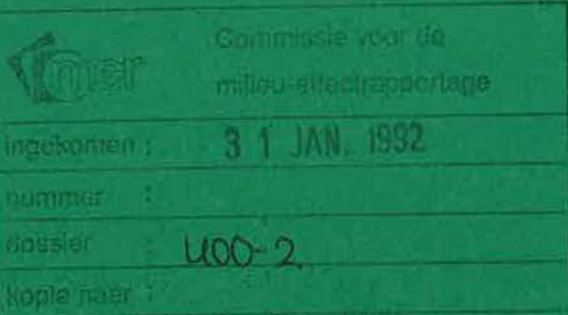 mer
Commissie voor de
milieu-effectrapportage
ingekomen : 31 JAN. 1992
nummer :
dossier : 400-2
kopie naar :